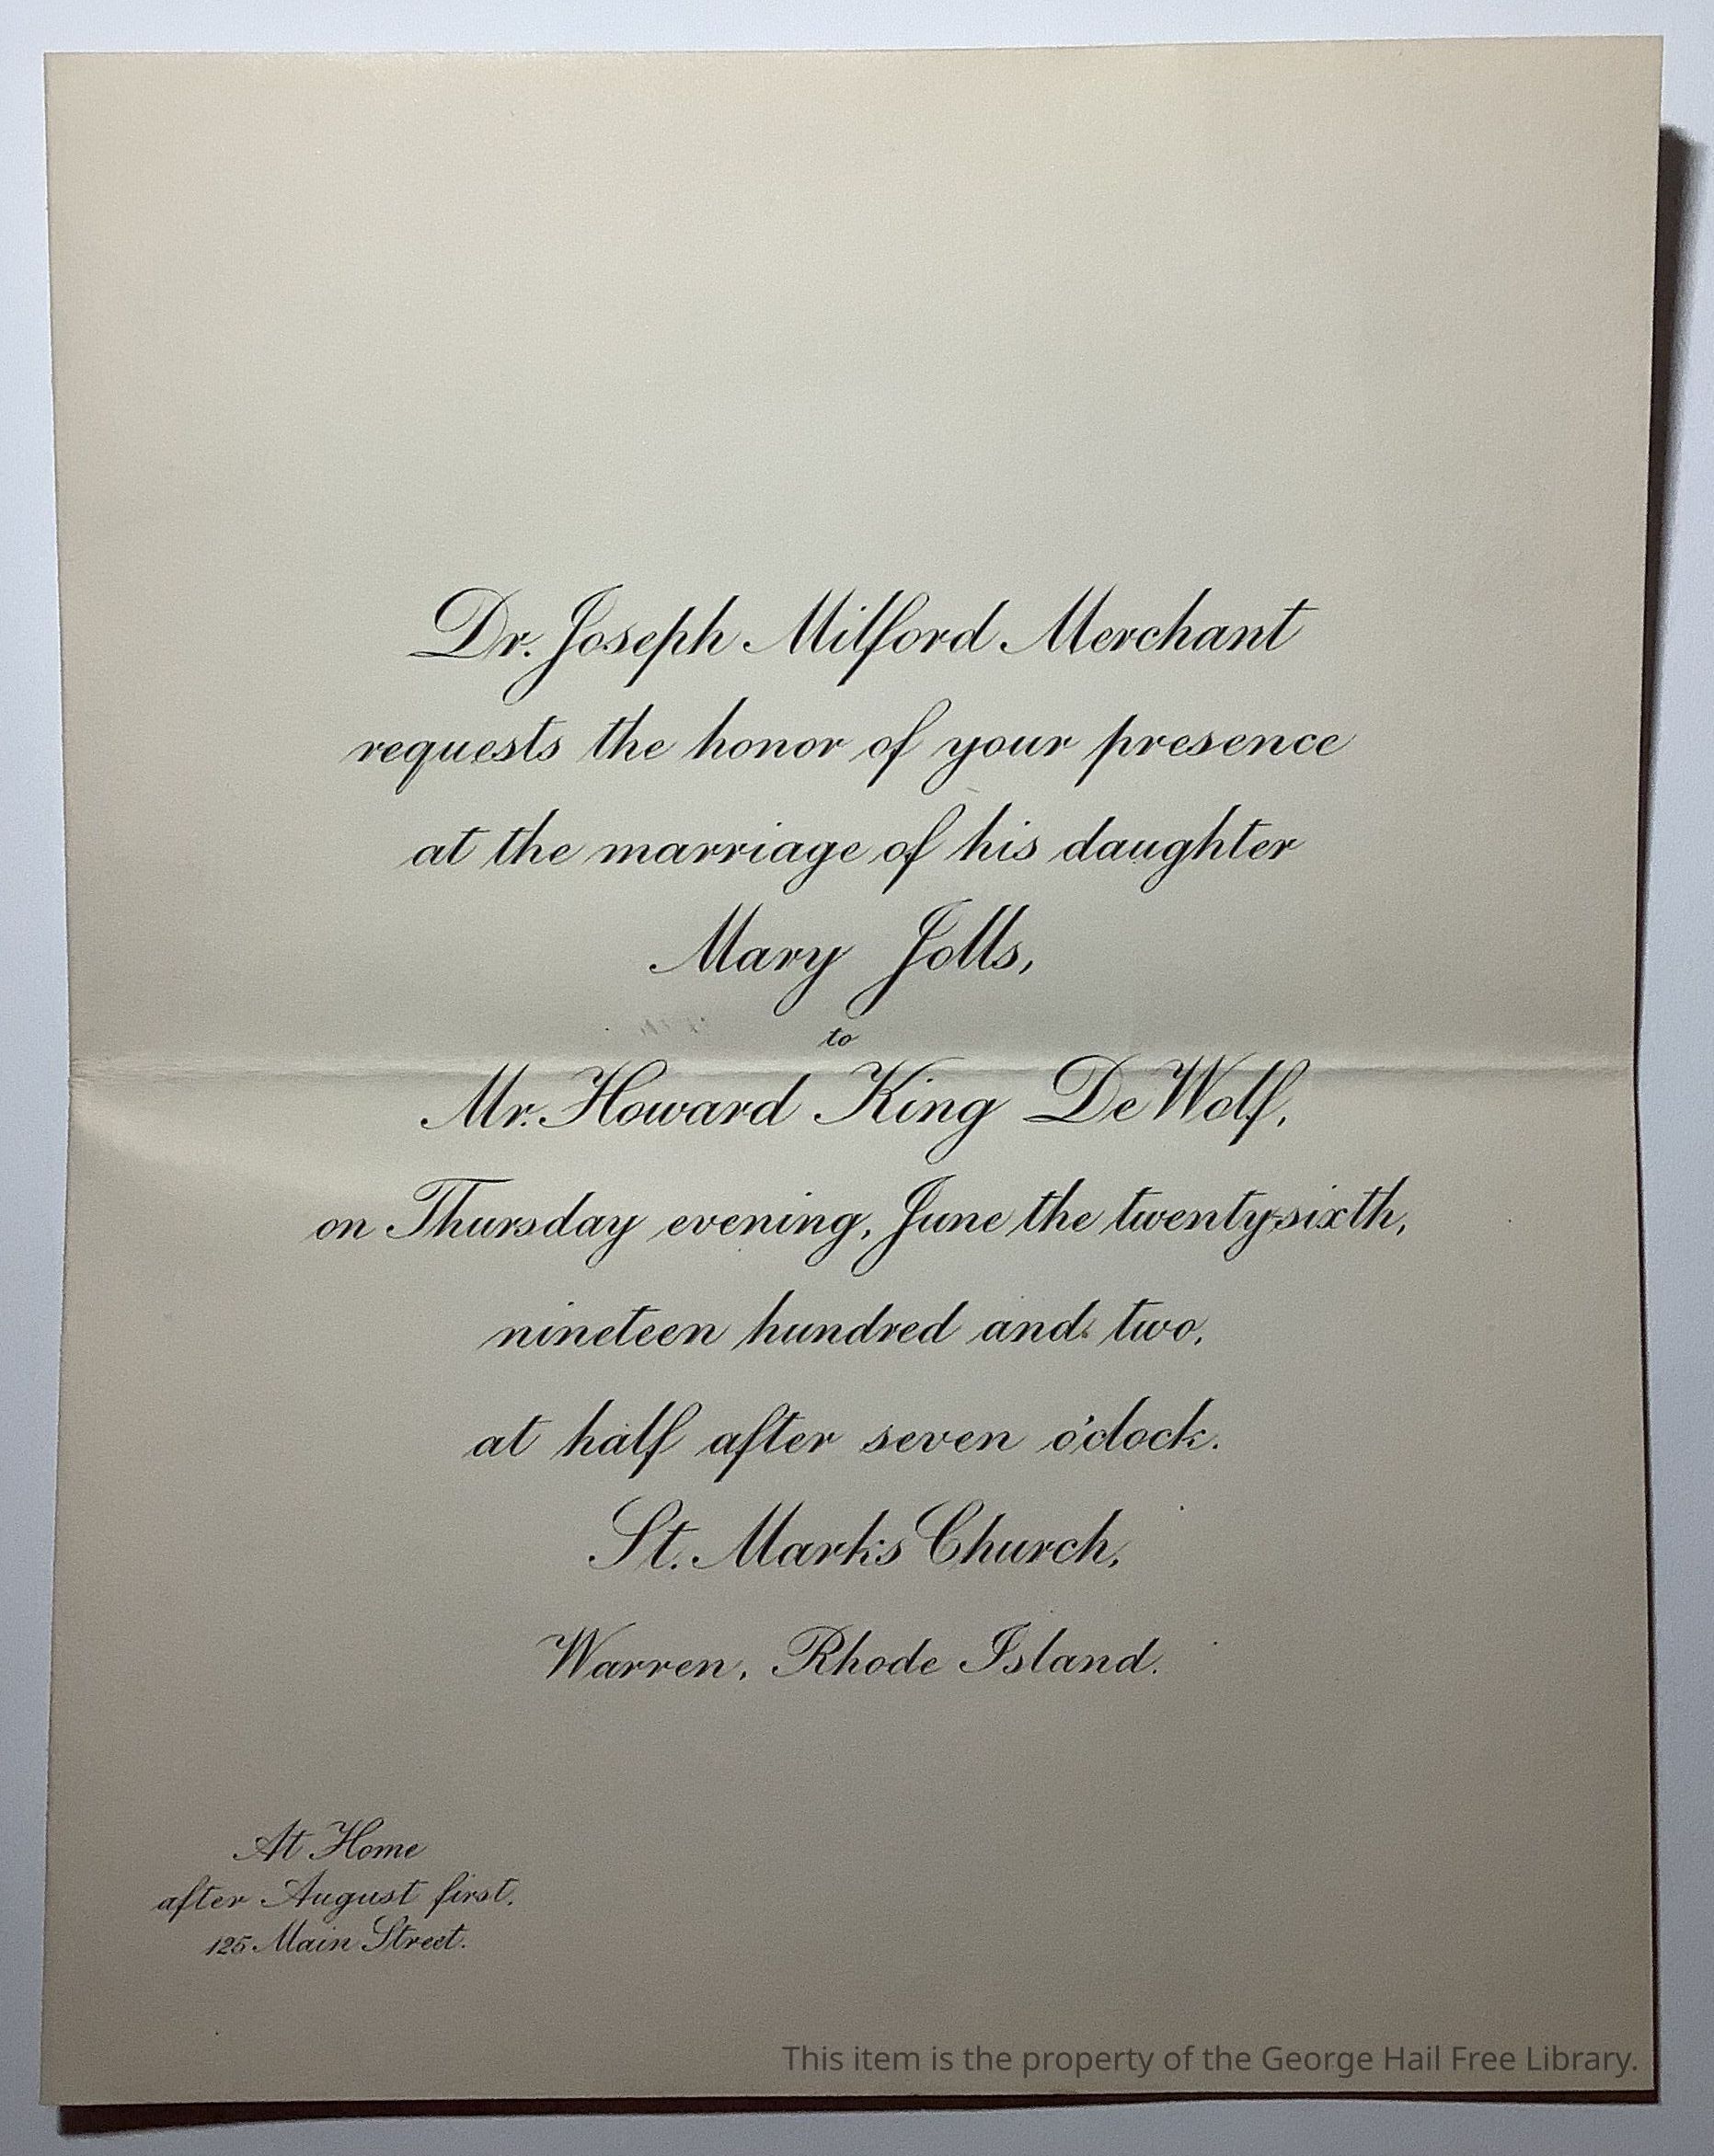 Dr. Joseph Milford Merchant
requests the honor of your presence
at the marriage of his daughter
Mary Jolls,
to
Mr. Howard King DeWolf,
on Thursday evening, June the twenty-sixth,
nineteen hundred and two,
at half after seven o'clock.
St. Mark's Church,
Warren, Rhode Island.
At Home
after August first,
125 Main Street.
This item is the property of the George Hail Free Library.